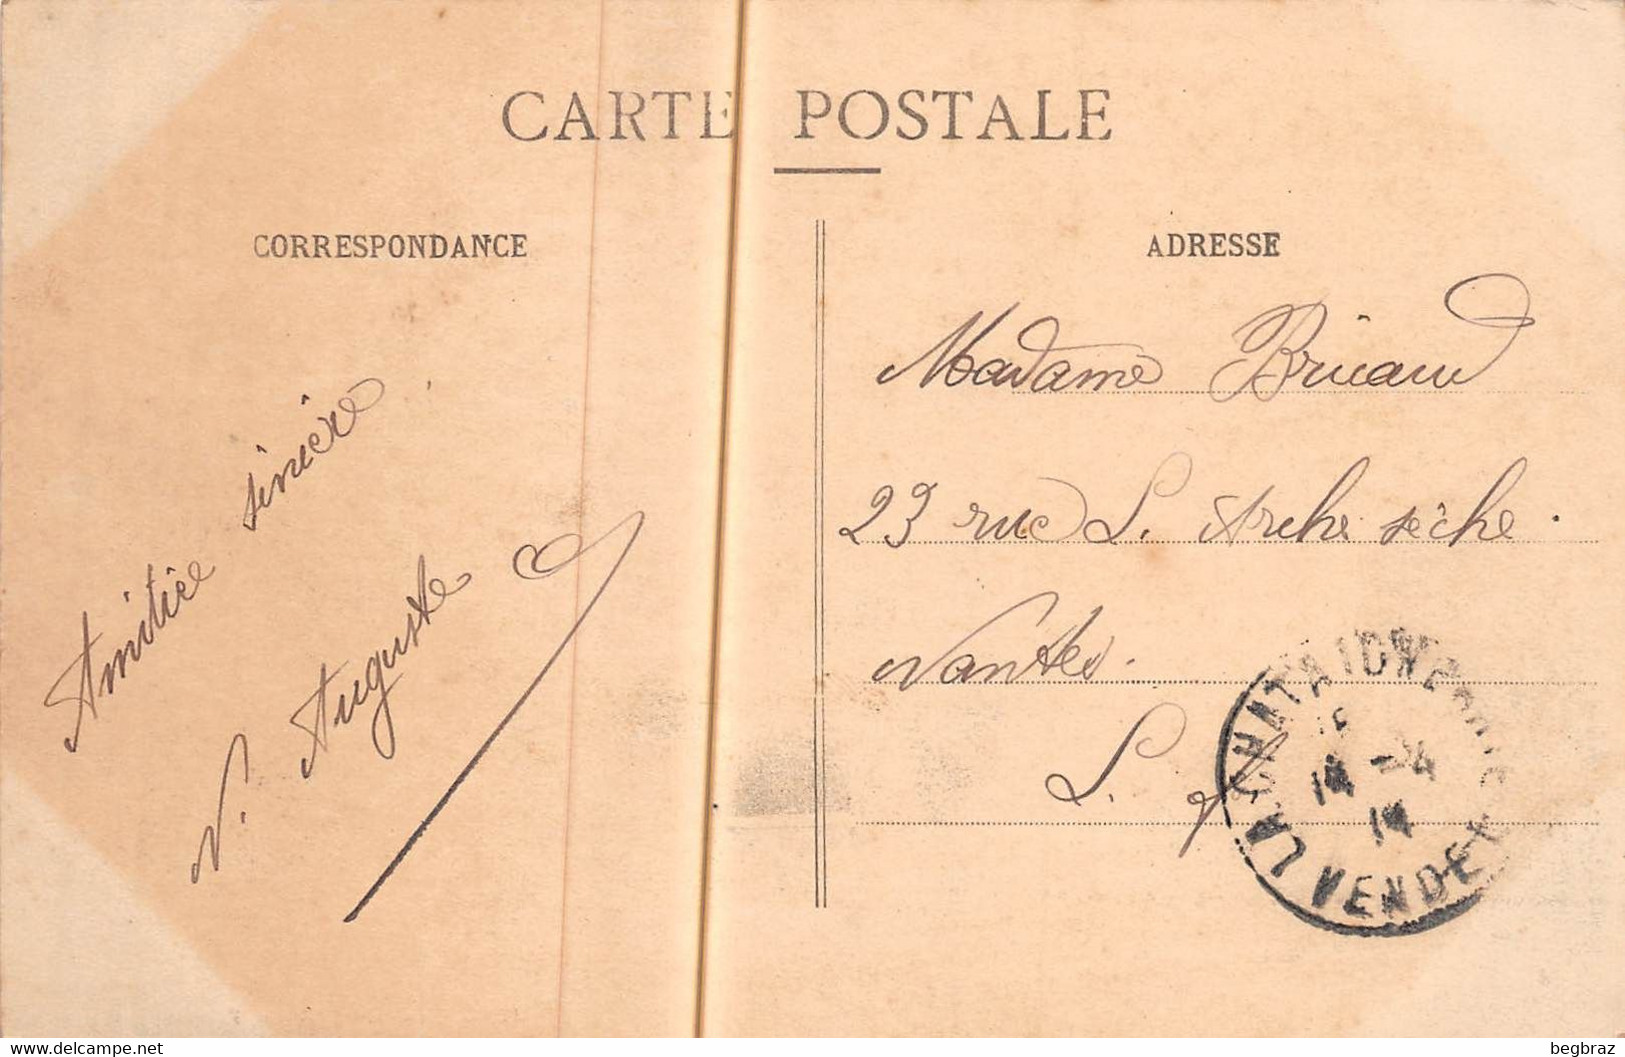 CARTE POSTALE
CORRESPONDANCE
ADRESSE
Amitiée sincère
V. Auguste
Madame
23 rue L. Arche sèche.
Nantes.
L. I.
LA CHATAIGNERAIE
14 -4
14
VENDEE
delcampe.net
begbraz